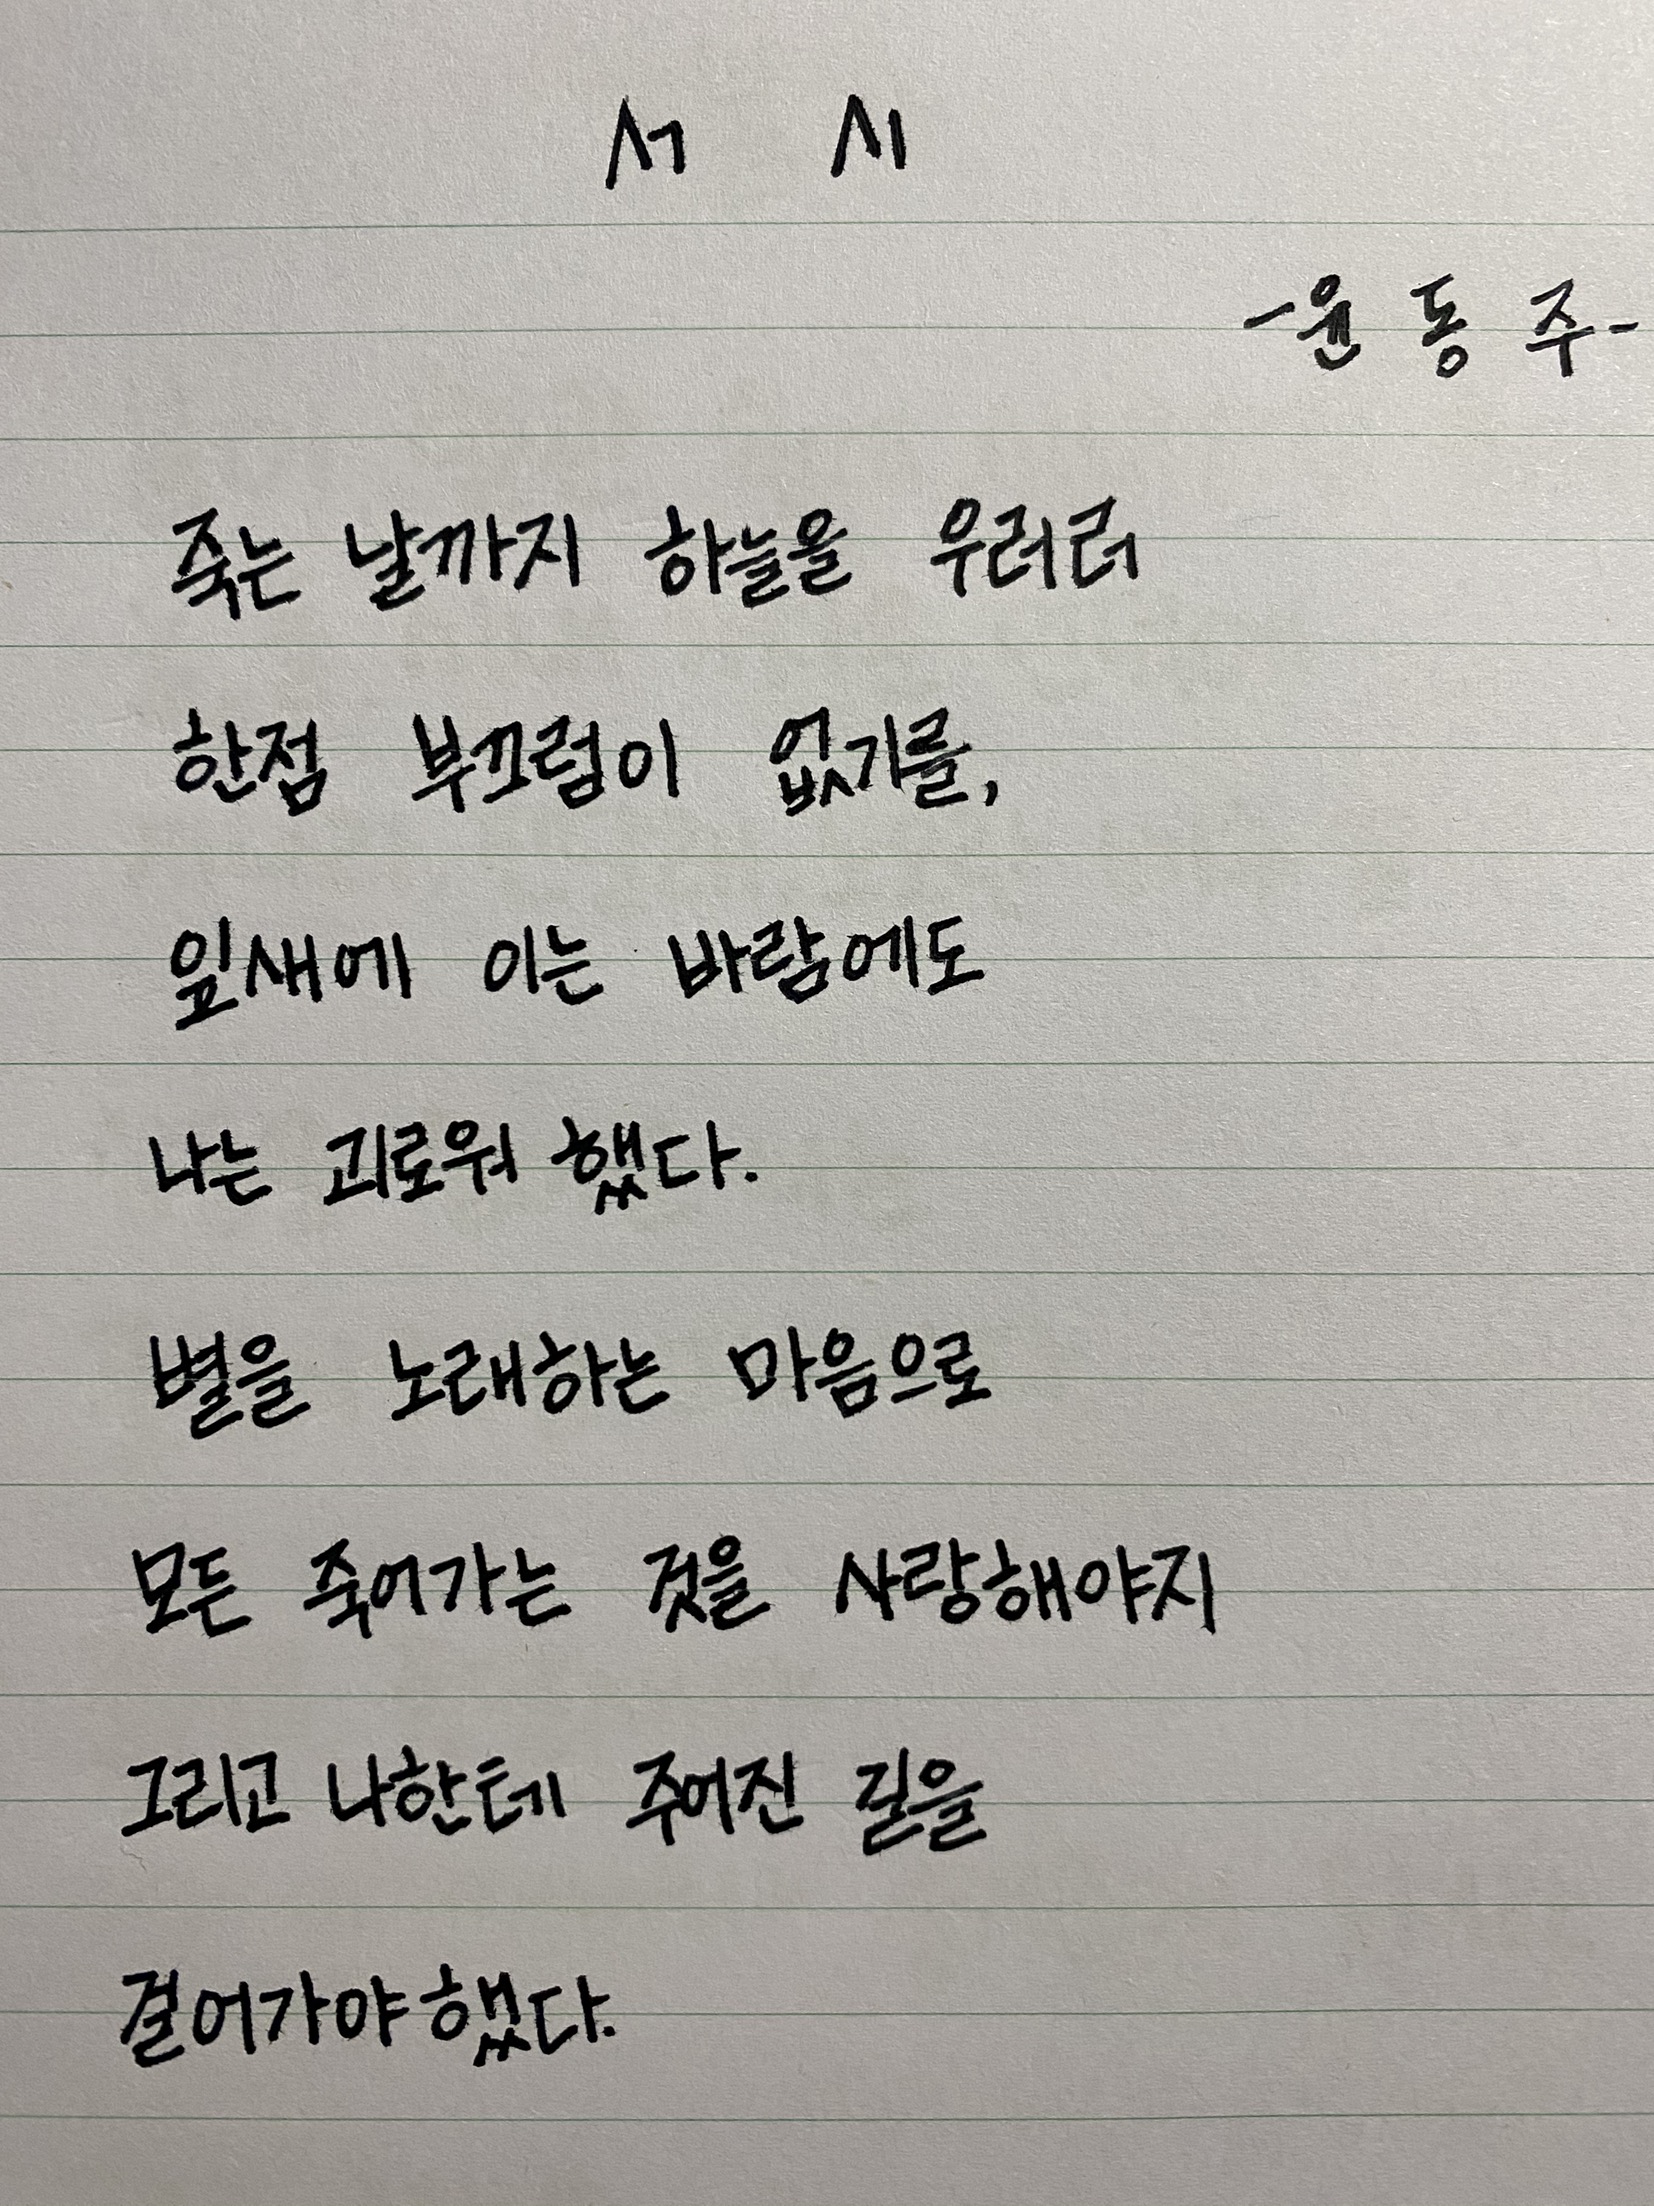 서 시
-윤 동 주-
죽는 날까지 하늘을 우러러
한점 부끄럼이 없기를,
잎새에 이는 바람에도
나는 괴로워 했다.
별을 노래하는 마음으로
모든 죽어가는 것을 사랑해야지
그리고 나한테 주어진 길을
걸어가야했다.